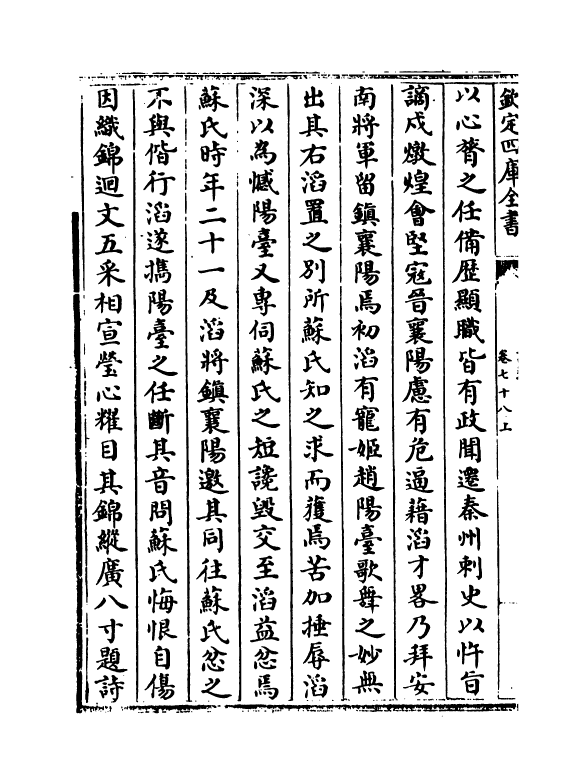 欽定四庫全書
卷七十八上
以心膂之任備歴顯職皆有政聞遷秦州刺史以忤旨
謫戍燉煌會堅寇晉襄陽慮有危逼藉滔才畧乃拜安
南將軍留鎮襄陽焉初滔有寵姬趙陽臺歌舞之妙無
出其右滔置之别所蘇氏知之求而獲焉苦加捶辱滔
深以為憾陽臺又專伺蘇氏之短讒毀交至滔益忿焉
蘇氏時年二十一及滔將鎮襄陽邀其同往蘇氏忿之
不與偕行滔遂攜陽臺之任斷其音問蘇氏悔恨自傷
因織錦迴文五采相宣瑩心耀目其錦縱廣八寸題詩